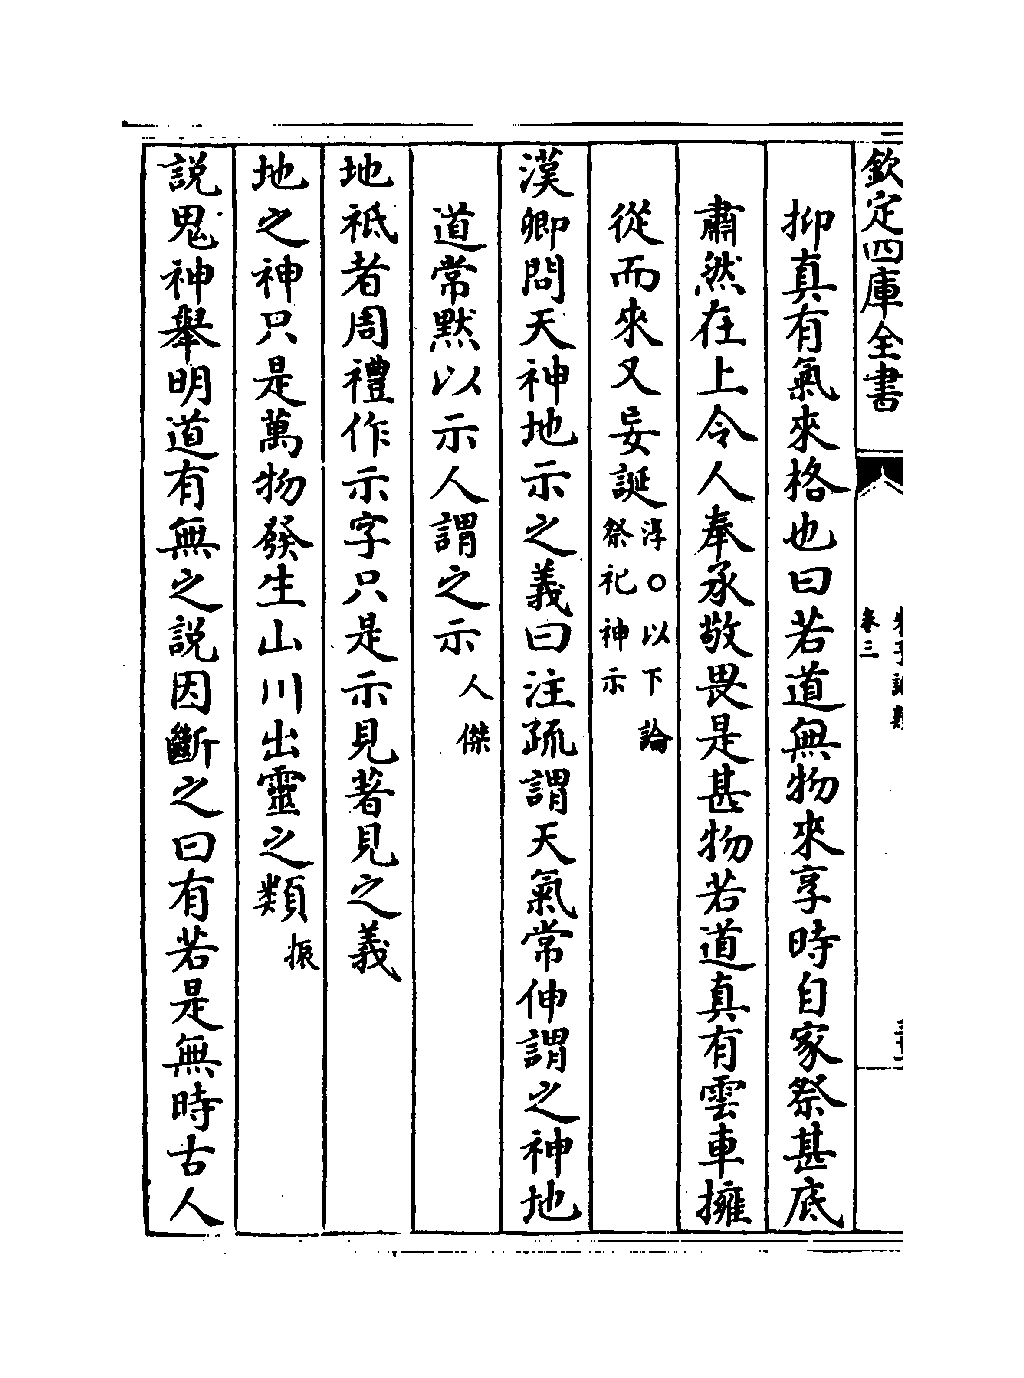 欽定四庫全書
卷三
抑真有氣來格也曰若道無物來享時自家祭甚底
肅然在上令人奉承敬畏是甚物若道真有雲車擁
從而來又妄誕淳○以下論祭祀神示
漢卿問天神地示之義曰注疏謂天氣常伸謂之神地
道常黙以示人謂之示人傑
地祗者周禮作示字只是示見著見之義
地之神只是萬物發生山川出靈之類振
説鬼神舉明道有無之説因斷之曰有若是無時古人